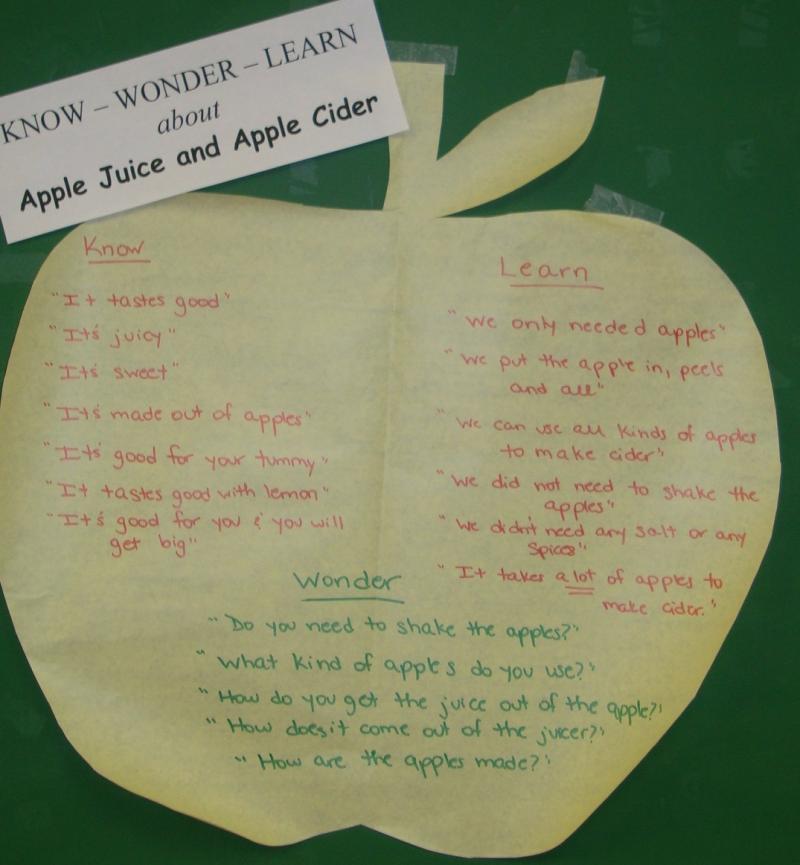 KNOW – WONDER – LEARN
about
Apple Juice and Apple Cider
Know
"It tastes good"
"It's juicy"
"It's sweet"
"It's made out of apples"
"It's good for your tummy"
"It tastes good with lemon"
"It's good for you & you will
get big"
Learn
"we only needed apples"
"we put the apple in, peels
and all"
"we can use all kinds of apples
to make cider"
"we did not need to shake the
apples"
"we didn't need any salt or any
spices"
"It takes a lot of apples to
make cider."
Wonder
"Do you need to shake the apples?"
"What kind of apples do you use?"
"How do you get the juice out of the apple?"
"How does it come out of the juicer?"
"How are the apples made?"